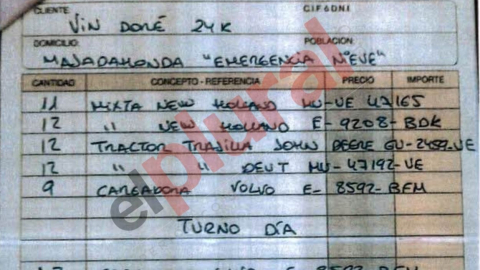 CLIENTE C.I.F. ó D.N.I.
VIN DORÉ 24K
DOMICILIO: POBLACIÓN
MAJADAHONDA "EMERGENCIA NIEVE"
CANTIDAD CONCEPTO - REFERENCIA PRECIO IMPORTE
11 MIXTA NEW HOLLAND MU-VE 47165
12 " NEW HOLLAND E-9208-BDK
12 TRACTOR TRAJILLA JOHN DEERE GU-2459-VE
12 " " DEUT MU-47192-VE
9 CARGADORA VOLVO E-8592-BFM
TURNO DÍA
elplural